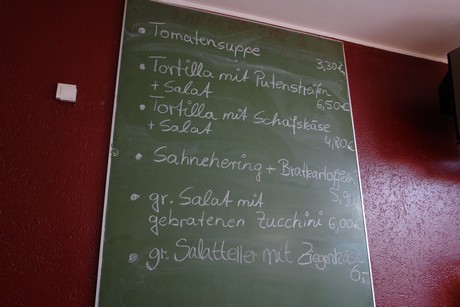 • Tomatensuppe
3,30€
• Tortilla mit Putenstreifen
+ Salat 6,50€
• Tortilla mit Schafskäse
+ Salat
4,80€
• Sahnehering + Bratkartoffeln
• gr. Salat mit
gebratenen Zucchini 6,00€
• gr. Salatteller mit Ziegenkäse
6,-